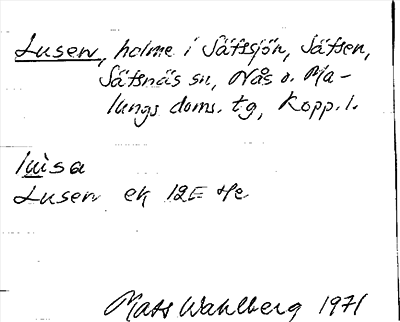 Lusen, holme i Säfssjön, Säfsen,
Säfsnäs sn, Nås o. Ma-
lungs doms. tg, Kopp. l.
lùisa
Lusen ek 12E
Mats Wahlberg 1971